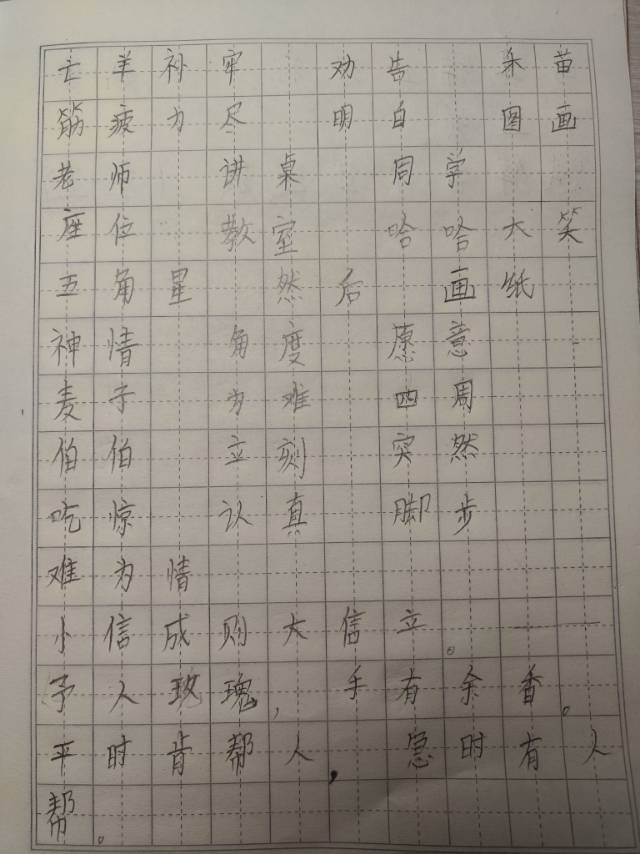 亡羊补牢 劝告 禾苗
筋疲力尽 明白 图画
老师 讲桌 同学
座位 教室 哈哈大笑
五角星 然后 画纸
神情 角度 愿意
麦子 为难 四周
伯伯 立刻 突然
吃惊 认真 脚步
难为情
小信成则大信立。——
予人玫瑰,手有余香。
平时肯帮人,急时有人
帮。